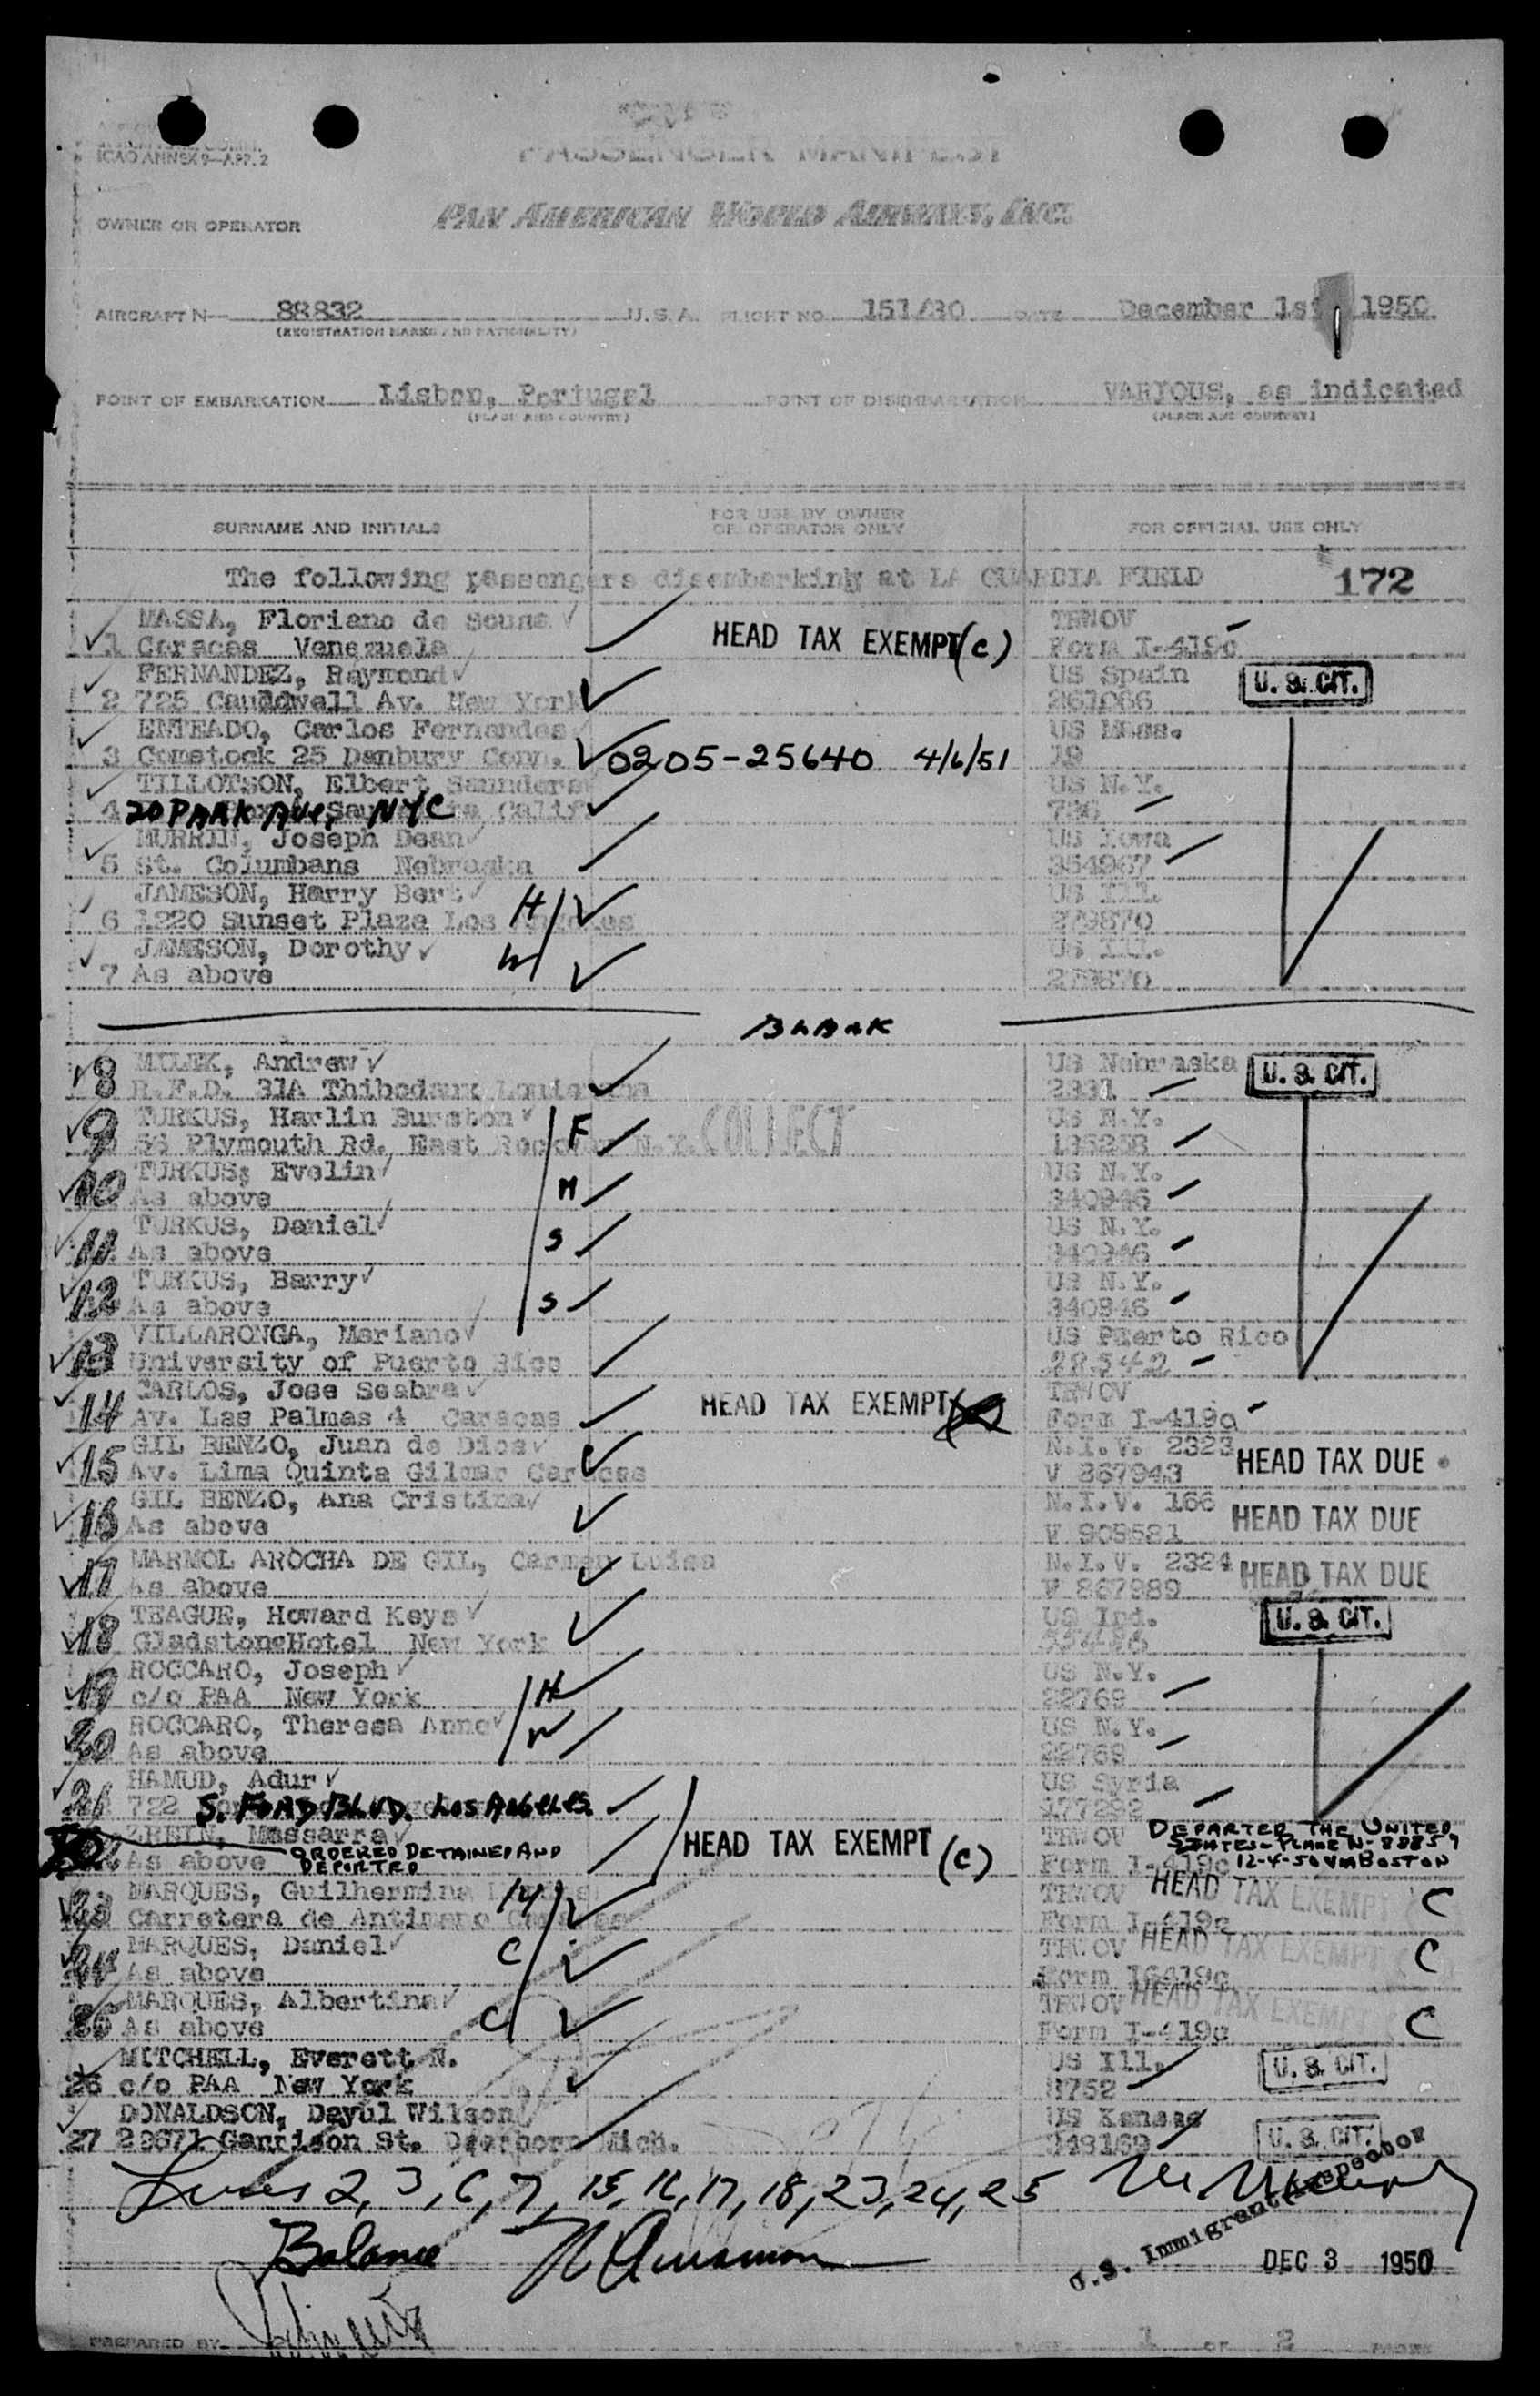 ICAO ANNEX 9—APP. 2
PASSENGER MANIFEST
OWNER OR OPERATOR PAN AMERICAN WORLD AIRWAYS, INC.
AIRCRAFT N— 88832 U.S.A. FLIGHT NO. 151/30 DATE December 1st 1950
(REGISTRATION MARKS AND NATIONALITY)
POINT OF EMBARKATION Lisbon, Portugal POINT OF DISEMBARKATION VARIOUS, as indicated
(PLACE AND COUNTRY) (PLACE AND COUNTRY)
SURNAME AND INITIALS FOR USE BY OWNER OR OPERATOR ONLY FOR OFFICIAL USE ONLY
The following passengers disembarking at LA GUARDIA FIELD 172
MASSA, Floriano de Sousa TRWOV
1 Caracas Venezuela HEAD TAX EXEMPT (C) Form I-419c
FERNANDEZ, Raymond US Spain U. S. CIT.
2 725 Cauldwell Av. New York 261066
ENTEADO, Carlos Fernandes US Mass.
3 Comstock 25 Danbury Conn. 0205-25640 4/6/51 19
TILLOTSON, Elbert Saunders US N.Y.
4 20 PARK Ave, NYC Calif 736
MURRIN, Joseph Dean US Iowa
5 St. Columbans Nebraska 354967
JAMESON, Harry Bert H US Ill.
6 1220 Sunset Plaza Los Angeles 279870
JAMESON, Dorothy W US Ill.
7 As above 279870
BLANK
MILEK, Andrew US Nebraska U. S. CIT.
8 R.F.D. 31A Thibodaux Louisiana 2331
TURKUS, Harlin Burston F US N.Y.
9 56 Plymouth Rd. East Rockaway N.Y. COLLECT 195258
TURKUS, Evelin M US N.Y.
10 As above 340946
TURKUS, Daniel S US N.Y.
11 As above 340946
TURKUS, Barry S US N.Y.
12 As above 340946
VILLARONGA, Mariano US Puerto Rico
13 University of Puerto Rico 28542
CARLOS, Jose Seabra TRWOV
14 Av. Las Palmas 4 Caracas HEAD TAX EXEMPT Form I-419c
GIL BENZO, Juan de Dios N.I.V. 2323 HEAD TAX DUE
15 Av. Lima Quinta Gilmar Caracas V 867943
GIL BENZO, Ana Cristina N.I.V. 166 HEAD TAX DUE
16 As above V 909581
MARMOL AROCHA DE GIL, Carmen Luisa N.I.V. 2324 HEAD TAX DUE
17 As above V 867989
TEAGUE, Howard Keys US Ind. U. S. CIT.
18 GladstoneHotel New York
ROCCARO, Joseph H US N.Y.
19 c/o PAA New York 22769
ROCCARO, Theresa Anne W US N.Y.
20 As above 22769
HAMUD, Adur US Syria
21 722 S. FORD BLVD. LOS ANGELES. 177292
ZREIN, Massarra TRWOV DEPARTED THE UNITED STATES-PLANE N-88859
As above ORDERED DETAINED AND DEPORTED HEAD TAX EXEMPT (C) Form I-419c 12-4-50 VIA BOSTON
MARQUES, Guilhermina M TRWOV HEAD TAX EXEMPT C
23 Carretera de Antimano Caracas Form I-419c
MARQUES, Daniel C TRWOV HEAD TAX EXEMPT C
24 As above Form I6419c
MARQUES, Albertina C TRWOV HEAD TAX EXEMPT C
25 As above Form I-419c
MITCHELL, Everett N. US Ill. U. S. CIT.
26 c/o PAA New York 8752
DONALDSON, Dayul Wilson US Kansas U. S. CIT.
27 22671 Garrison St. Dearborn Mich. 348169
Lines 2, 3, 6, 7, 15, 16, 17, 18, 23, 24, 25
Balance
U.S. Immigrant Inspector
DEC 3 1950
PREPARED BY PAGE 1 OF 2 PAGES